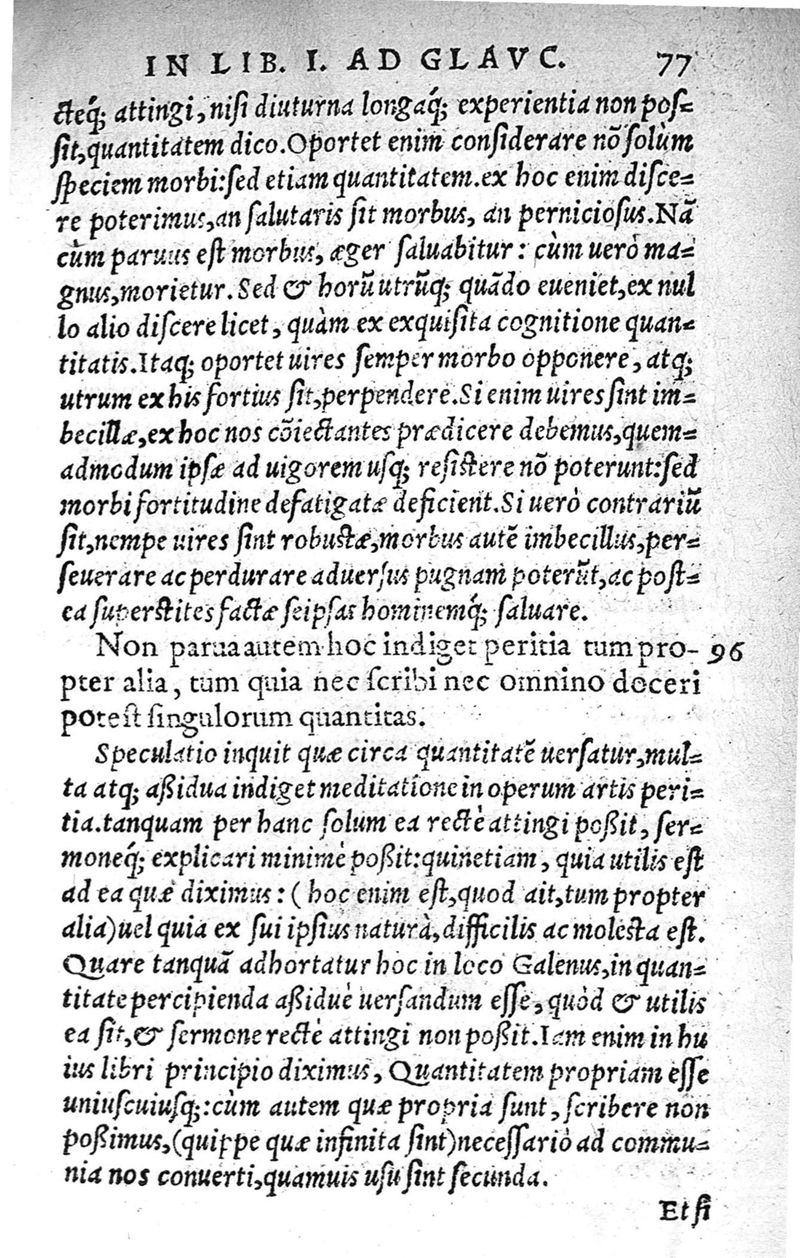 IN LIB. I. AD GLAVC. 77
cteq́; attingi, nisi diuturna longaq́; experientia non pos-
sit, quantitatem dico. Oportet enim considerare nō solùm
speciem morbi: sed etiam quantitatem. ex hoc enim disce-
re poterimus, an salutaris sit morbus, an perniciosus. Nā
cùm paruus est morbus, æger saluabitur: cùm uerò ma-
gnus, morietur. Sed & horū utrūq; quādo eueniet, ex nul
lo alio discere licet, quàm ex exquisita cognitione quan-
titatis. Itaq; oportet uires semper morbo opponere, atq;
utrum ex his fortius sit, perpendere. Si enim uires sint im-
becillæ, ex hoc nos cōiectantes prædicere debemus, quem-
admodum ipsæ ad uigorem usq; resistere nō poterunt: sed
morbi fortitudine defatigatæ deficient. Si uerò contrariū
sit, nempe uires sint robustæ, morbus autē imbecillus, per-
seuerare ac perdurare aduersus pugnam poterūt, ac post-
ea superstites factæ seipsas hominemq́; saluare.
Non parua autem hoc indiget peritia tum pro- 96
pter alia, tum quia nec scribi nec omnino doceri
potest singulorum quantitas.
Speculatio inquit quæ circa quantitatē uersatur, mul-
ta atq; aßidua indiget meditatione in operum artis peri-
tia. tanquam per hanc solum ea rectè attingi poßit, ser-
moneq́; explicari minimè poßit: quinetiam, quia utilis est
ad ea quæ diximus: (hoc enim est, quod ait, tum propter
alia) uel quia ex sui ipsius naturà, difficilis ac molesta est.
Quare tanquā adhortatur hoc in loco Galenus, in quan-
titate percipienda aßiduè uersandum esse, quòd & utilis
ea sit, & sermone rectè attingi non poßit. Iam enim in hu
ius libri principio diximus, Quantitatem propriam esse
uniuscuiusq;: cùm autem quæ propria sunt, scribere non
poßimus, (quippe quæ infinita sint) necessariò ad commu-
nia nos conuerti, quamuis usu sint secunda.
Et si